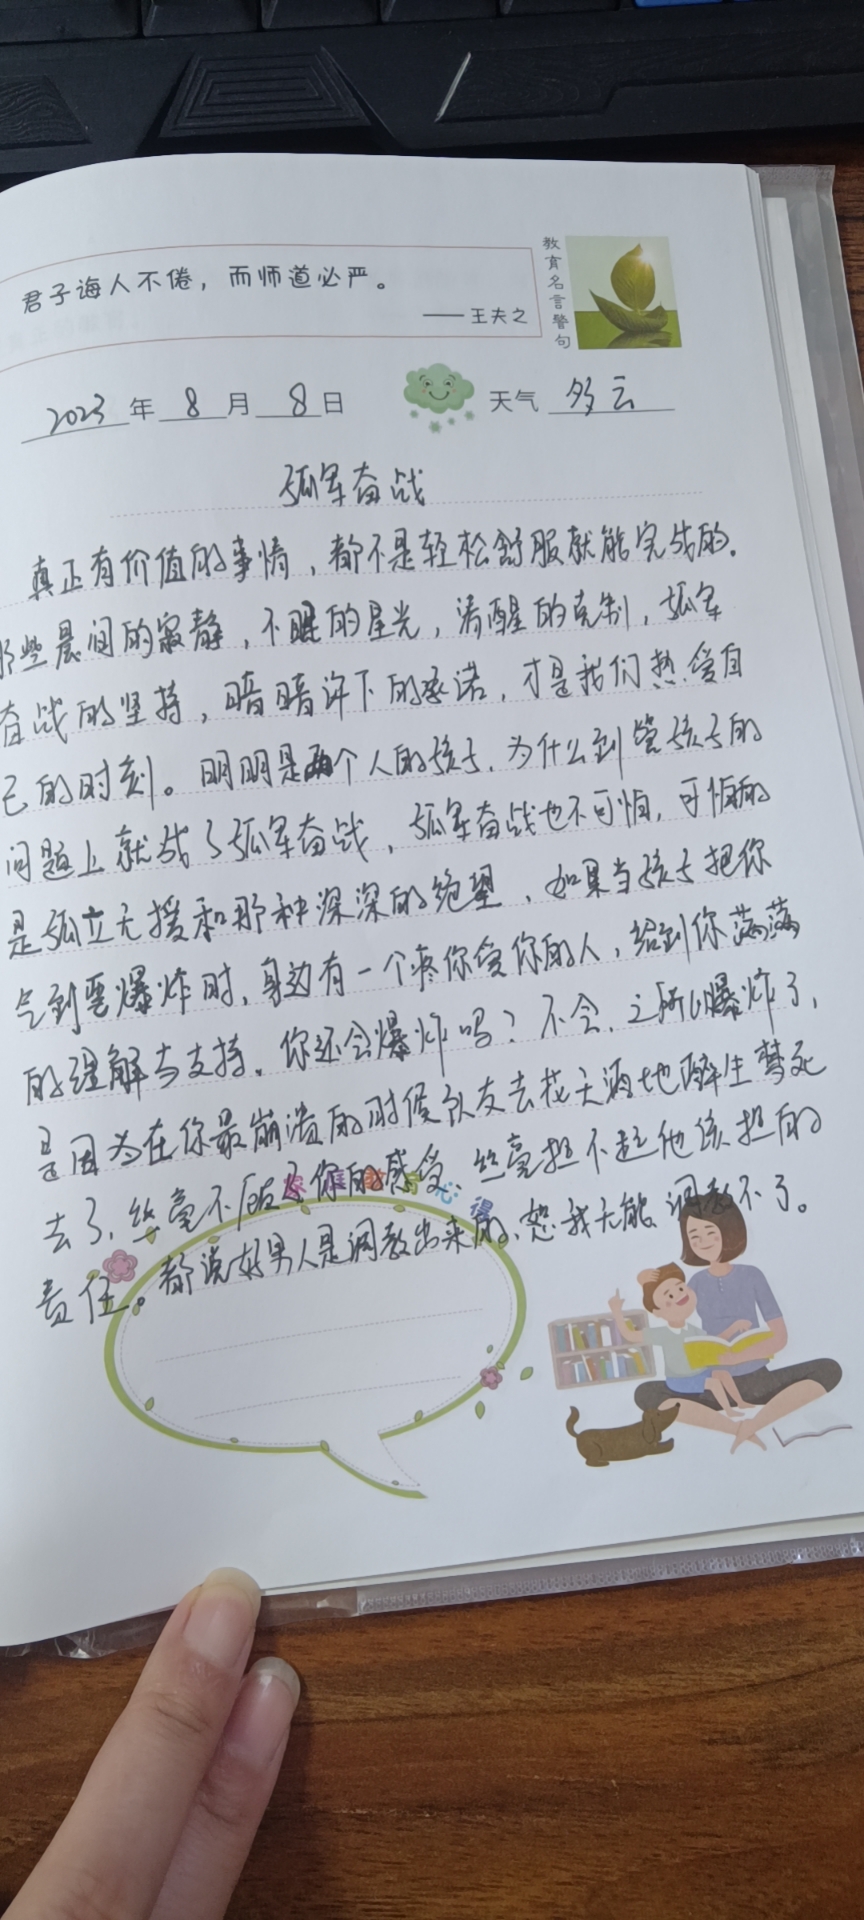 君子诲人不倦，而师道必严。
——王夫之
教育名言警句
2023年8月8日 天气 多云
孤军奋战
真正有价值的事情，都不是轻松舒服就能完成的。
那些晨间的寂静，不眠的星光，清醒的克制，孤军
奋战的坚持，暗暗许下的承诺，才是我们热爱自
己的时刻。明明是两个人的孩子，为什么到管孩子的
问题上就成了孤军奋战，孤军奋战也不可怕，可怕的
是孤立无援和那种深深的绝望，如果当孩子把你
气到要爆炸时，身边有一个疼你爱你的人，给到你满满
的理解与支持，你还会爆炸吗？不会，之所以爆炸了，
是因为在你最崩溃的时候队友去花天酒地醉生梦死
去了，丝毫不顾及你的感受、丝毫担不起他该担的
责任。都说好男人是调教出来的，恕我无能，调教不了。
心得